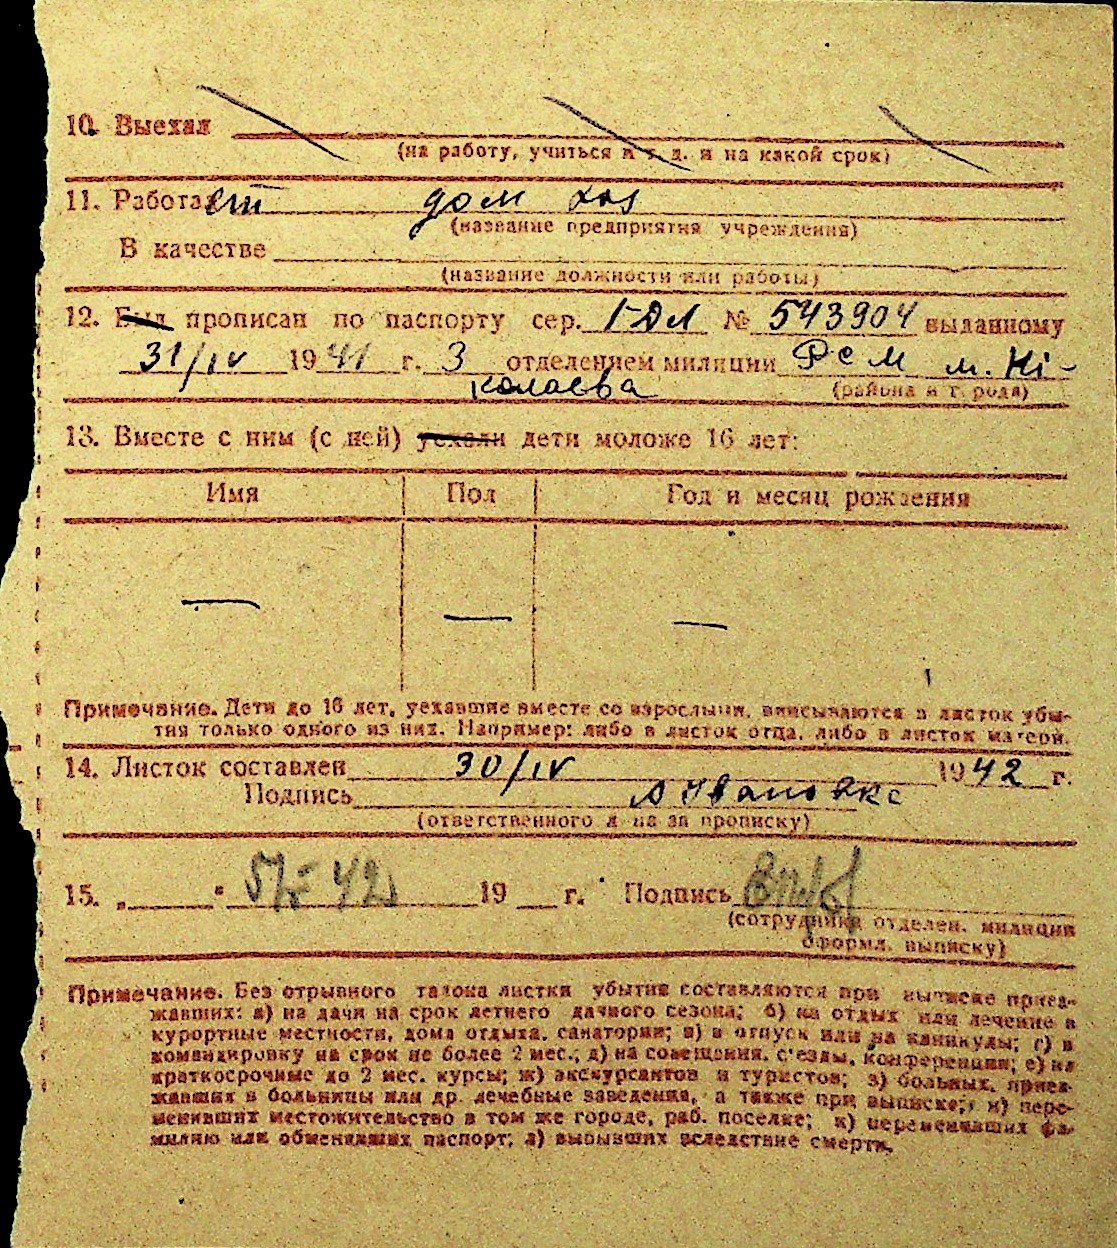 10. Выехал
(на работу, учиться и т. д. и на какой срок)
11. Работает дом хоз
(название предприятия учреждения)
В качестве
(название должности или работы)
12. Был прописан по паспорту сер. І-ДЛ № 543904 выданному
31/IV 1941 г. 3 отделением милиции РСМ м. Ні-
колаєва (района и города)
13. Вместе с ним (с ней) уехали дети моложе 16 лет:
Имя Пол Год и месяц рождения
— — —
Примечание. Дети до 16 лет, уехавшие вместе со взрослыми, вписываются в листок убы-
тия только одного из них. Например: либо в листок отца, либо в листок матери.
14. Листок составлен 30/IV 1942 г.
Подпись
(ответственного л-ца за прописку)
15. „ “ 42 19 г. Подпись
(сотрудника отделен. милиции
оформл. выписку)
Примечание. Без отрывного талона листки убытия составляются при выписке приез-
жавших: а) на дачи на срок летнего дачного сезона; б) на отдых или лечение в
курортные местности, дома отдыха, санатории; в) в отпуск или на каникулы; г) в
командировку на срок не более 2 мес.; д) на совещания, с'езды, конференции; е) на
краткосрочные до 2 мес. курсы; ж) экскурсантов и туристов; з) больных, приез-
жавших в больницы или др. лечебные заведения, а также при выписке; и) пере-
менивших местожительство в том же городе, раб. поселке; к) переменивших фа-
милию или обменявших паспорт; л) выбывших вследствие смерти.